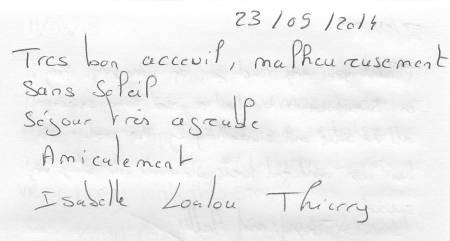 23/05/2014
Tres bon acceuil, malheureusement
Sans Soleil
Séjour très agreable
Amicalement
Isabelle Loulou Thierry